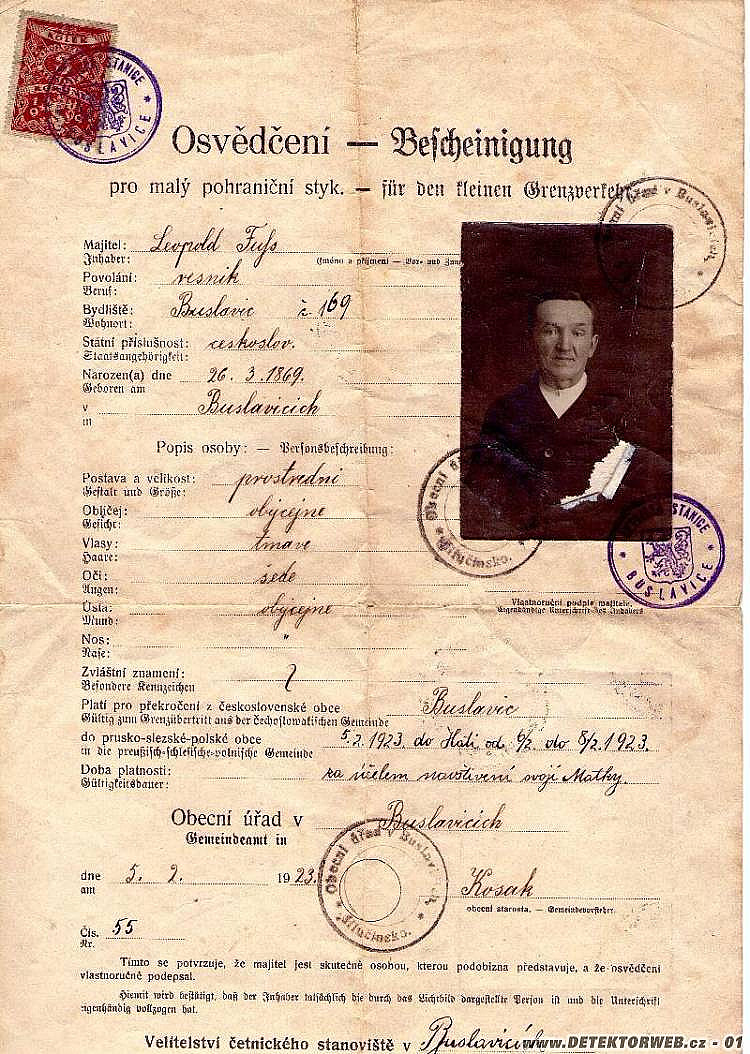 KOLEK
STANICE
BUSLAVICE
Osvědčení — Bescheinigung
pro malý pohraniční styk. — für den kleinen Grenzverkehr
úřad v Buslavicích
Majitel: Leopold Fuss
Inhaber: (Jméno a příjmení — Vor- und
Povolání: resnik
Beruf:
Bydliště: Buslavic č. 169
Wohnort:
Státní příslušnost: ceskoslov.
Staatsangehörigkeit:
Narozen(a) dne 26. 3. 1869.
Geboren am
v Buslavicich
in
Popis osoby: — Personsbeschreibung:
Postava a velikost: prostredni
Gestalt und Größe:
Obličej: obycejne
Gesicht:
Vlasy: tmave
Haare:
Oči: šede
Augen:
Ústa: obycejne
Mund:
Nos: "
Nase:
Obecní
Hlučínsko.
STANICE
BUSLAVICE
Vlastnoruční podpis majitele.
Eigenhändige Unterschrift des Inhabers
Zvláštní znamení:
Besondere Kennzeichen
Platí pro překročení z československé obce Buslavic
Gültig zum Grenzübertritt aus der čechoslowakischen Gemeinde
do prusko-slezské-polské obce 5.2.1923 do Háti od 6/2. do 8/2.1923.
in die preußisch-schlesische-polnische Gemeinde
Doba platnosti: za účelem navštivení svojí Matky.
Gültigkeitsdauer:
Obecní úřad v Buslavicich
Gemeindeamt in
dne 5. 2. 1923.
am
Obecní úřad v Buslavicích
Hlučínsko.
Kosak
obecní starosta. — Gemeindevorsteher.
Čís. 55
Nr.
Tímto se potvrzuje, že majitel jest skutečně osobou, kterou podobizna představuje, a že osvědčení
vlastnoručně podepsal.
Hiemit wird bestätigt, daß der Inhaber tatsächlich die durch das Lichtbild dargestellte Person ist und die Unterschrift
eigenhändig vollzogen hat.
Velitelství četnického stanoviště v Buslavicích
www.DETEKTORWEB.cz - 01